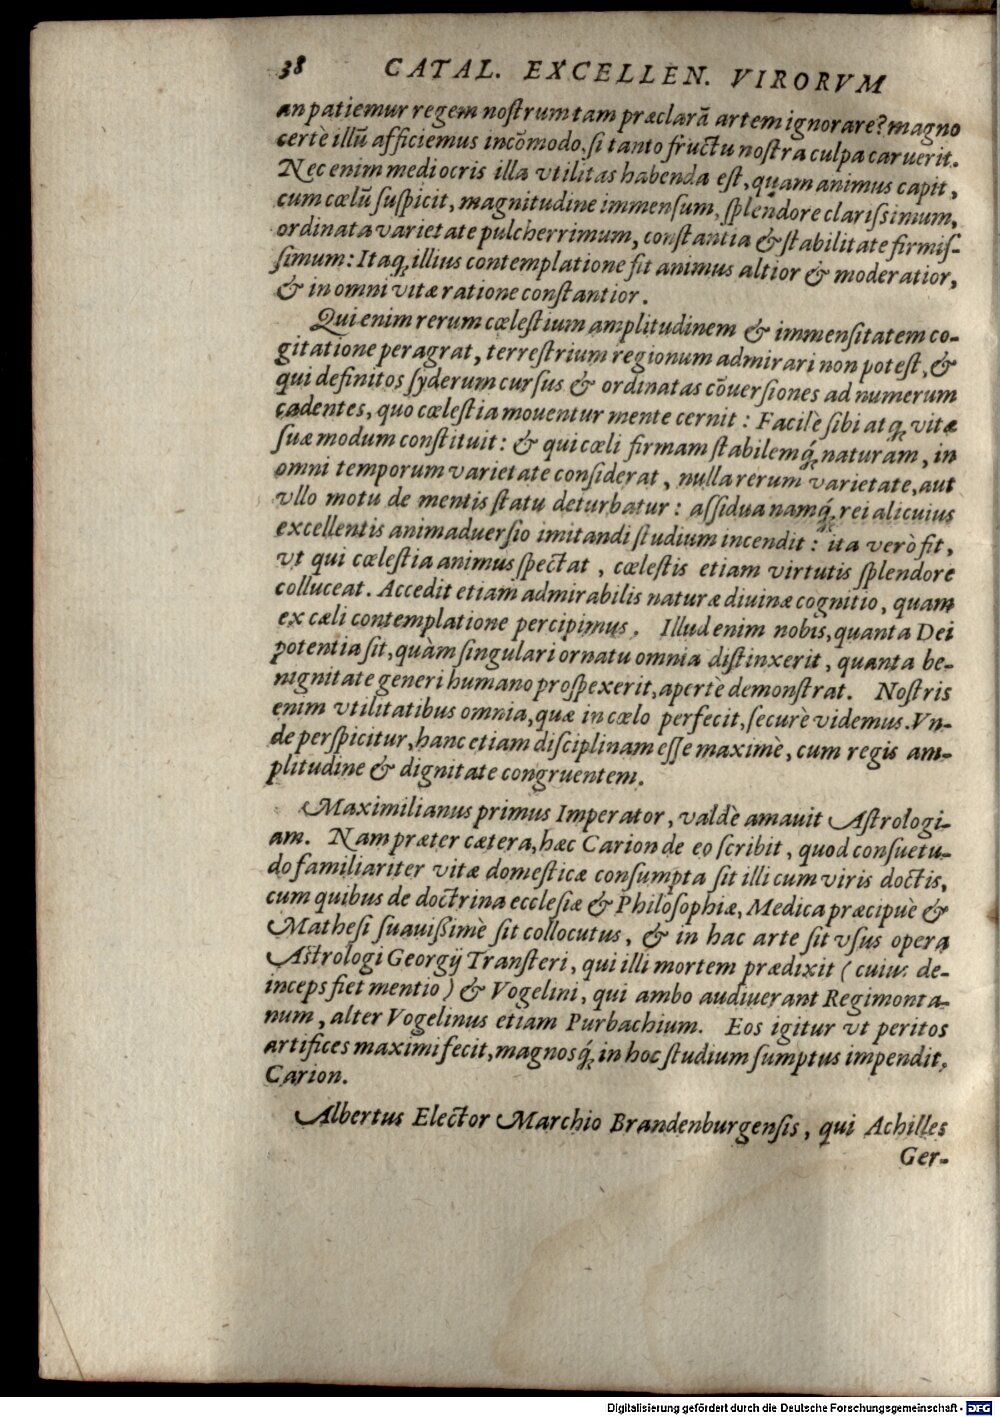 38 CATAL. EXCELLEN. VIRORVM
an patiemur regem noſtrum tam præclarã artem ignorare? magno
certè illũ afficiemus incõmodo, ſi tanto fructu noſtra culpa caruerit.
Nec enim mediocris illa vtilitas habenda eſt, quam animus capit,
cum cœlũ ſuſpicit, magnitudine immenſum, ſplendore clariſsimum,
ordinata varietate pulcherrimum, conſtantia & ſtabilitate firmiſ-
ſimum: Itaq; illius contemplatione fit animus altior & moderatior,
& in omni vitæ ratione conſtantior.
Qui enim rerum cœleſtium amplitudinem & immenſitatem co-
gitatione peragrat, terreſtrium regionum admirari non poteſt, &
qui definitos ſyderum curſus & ordinatas cõuerſiones ad numerum
cadentes, quo cœleſtia mouentur mente cernit: Facilè ſibi atq; vitæ
ſuæ modum conſtituit: & qui cœli firmam ſtabilemq́; naturam, in
omni temporum varietate conſiderat, nulla rerum varietate, aut
vllo motu de mentis ſtatu deturbatur: aſſidua namq́; rei alicuius
excellentis animaduerſio imitandi ſtudium incendit: ita verò fit,
vt qui cœleſtia animus ſpectat, cœleſtis etiam virtutis ſplendore
colluceat. Accedit etiam admirabilis naturæ diuinæ cognitio, quam
ex cœli contemplatione percipimus. Illud enim nobis, quanta Dei
potentia ſit, quàm ſingulari ornatu omnia diſtinxerit, quanta be-
nignitate generi humano proſpexerit, apertè demonſtrat. Noſtris
enim vtilitatibus omnia, quæ in cœlo perfecit, ſecurè videmus. Vn-
de perſpicitur, hanc etiam diſciplinam eſſe maximè, cum regis am-
plitudine & dignitate congruentem.
Maximilianus primus Imperator, valdè amauit Aſtrologi-
am. Nam præter cætera, hæc Carion de eo ſcribit, quod conſuetu-
do familiariter vitæ domeſticæ conſumpta ſit illi cum viris doctis,
cum quibus de doctrina eccleſiæ & Philoſophiæ, Medica præcipuè &
Matheſi ſuauiſſimè ſit collocutus, & in hac arte ſit vſus opera
Aſtrologi Georgij Tranſteri, qui illi mortem prædixit (cuius de-
inceps fiet mentio) & Vogelini, qui ambo audiuerant Regimonta-
num, alter Vogelinus etiam Purbachium. Eos igitur vt peritos
artifices maximi fecit, magnosq́; in hoc ſtudium ſumptus impendit,
Carion.
Albertus Elector Marchio Brandenburgenſis, qui Achilles
Ger-
Digitalisierung gefördert durch die Deutsche Forschungsgemeinschaft - DFG